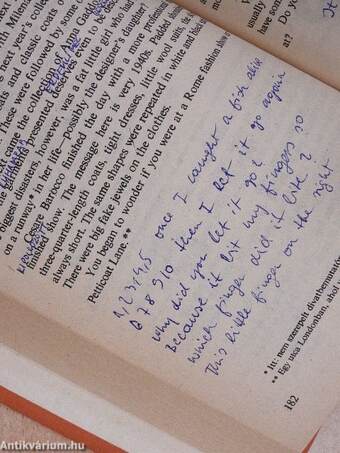 with Milena
next year's
coats and classic coats of
Next came the collection of Anne Gar
she gaily presented designs
These were followed by some o
biggest disasters, however, was a fat little girl who had
on a runway* in her life—possibly the designer's daughter!
Cesare Barocco finished the day with a more professional
finished show. The message here is very 1940s. Padded shou
three-quarter-length coats, tight dresses, little wool suits, the s
always short. The same shapes were repeated in white and bla
There were big fake jewels on the clothes.
You began to wonder if you were at a Rome fashion show o
Petticoat Lane.**
1, 2, 3, 4, 5 once I caught a fish alive
6 7 8 9 10 then I let it go again
Why did you let it go?
Because it bit my fingers so
Which finger did it bite?
This little finger on the right
* Itt: nem szerepelt divatbemutató
** Egy utca Londonban, ahol
182
usually
some
at?
Do yo
It
Antikvárium.hu